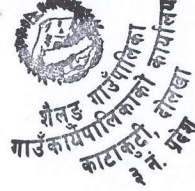 शैलुङ गाउँपालिका
गाउँकार्यपालिकाको कार्यालय
काटाकुटी, दोलखा
३ नं. प्रदेश